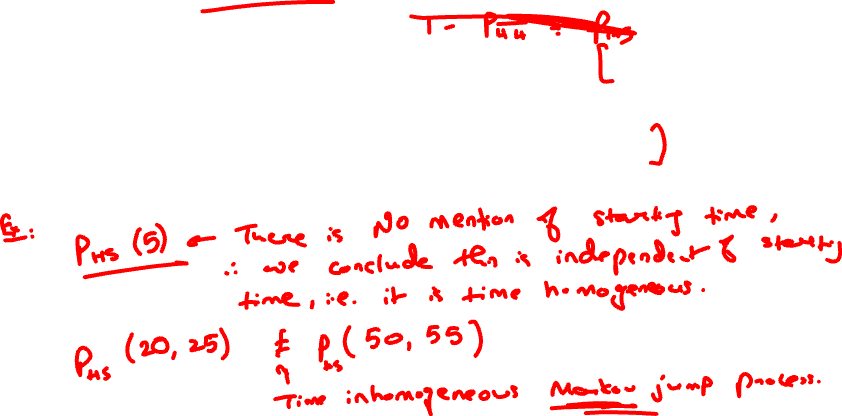 1 - P_HH = P_HS
[
]
Eg: P_HS (5) ← There is No mention of starting time,
∴ we conclude this is independent of starting
time, i.e. it is time homogeneous.
P_HS (20, 25) ≠ P_HS (50, 55)
Time inhomogeneous Markov jump process.